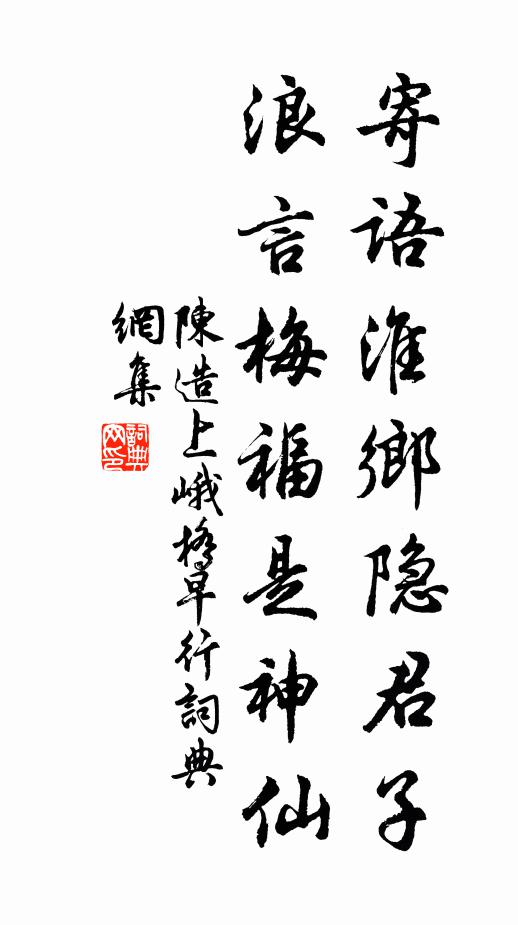 寄語淮鄉隐君子
浪言梅福是神仙
陳造上峨橋早行詞典
網集
詞典
网印